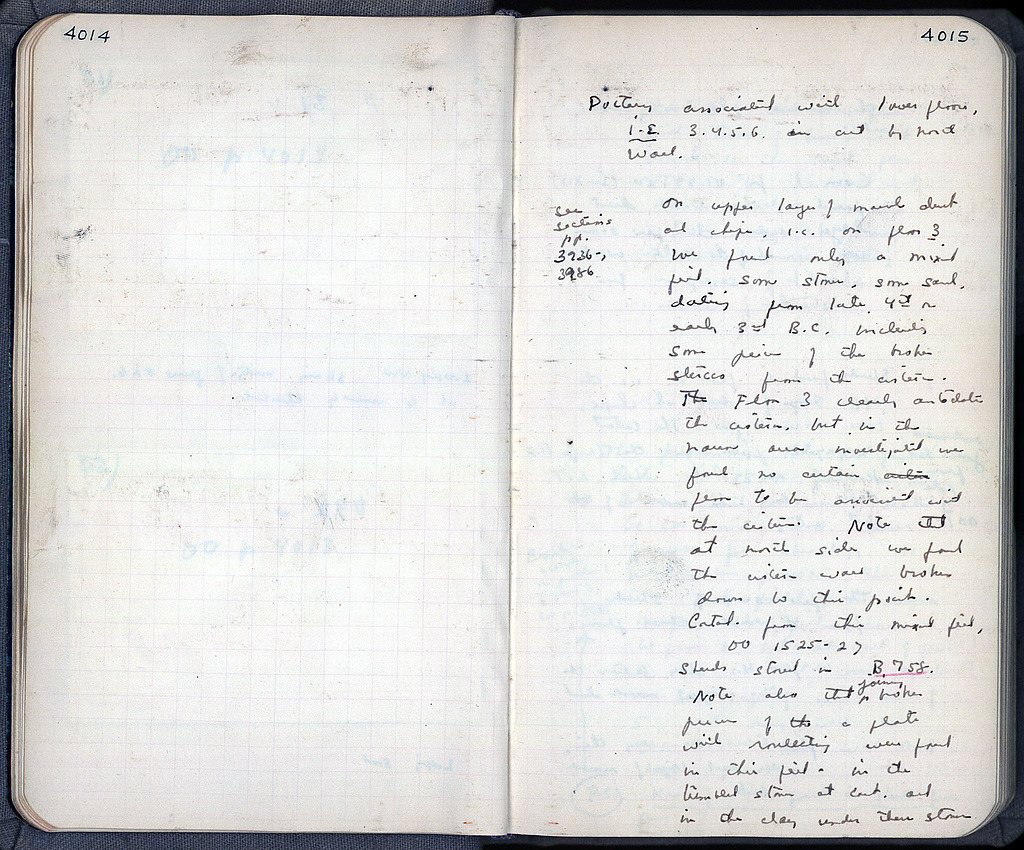 4014
4015
Pottery associated with lower floors,
i.e. 3.4.5.6. in cut by north
wall.
see
sections
pp.
3936-,
3986
On upper layer of marble dust
and chips, i.e. on floor 3
we found only a mixed
fill, some stones, some sand,
dating from late 4th or
early 3rd B.C. including
some pieces of the broken
from the cistern.
The Floor 3 clearly antedates
the cistern, but in the
narrow area investigated we
found no certain cistern
floor to be associated with
the cistern. Note that
at north side we found
the cistern wall broken
down to this point.
Catal. from this mixed fill,
OO 1525-27
Sherds stored in B 758.
Note also that joining broken
pieces of the a plate
with rouletting were found
in this fill - in the
tumbled stones at east, and
in the clay under these stones